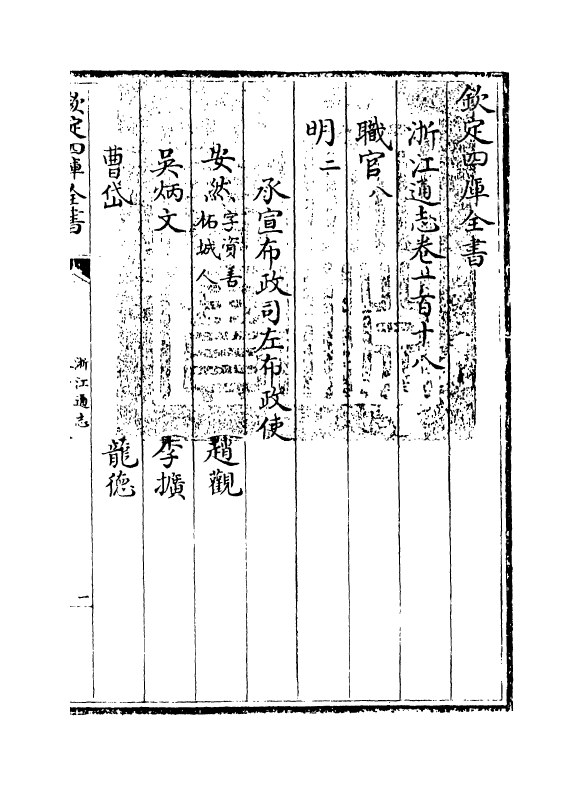 欽定四庫全書
浙江通志卷一百十八
職官八
明二
承宣布政司左布政使
安然字資善柘城人 趙觀
吳炳文 李擴
曹岱 龍德
欽定四庫全書
浙江通志
一